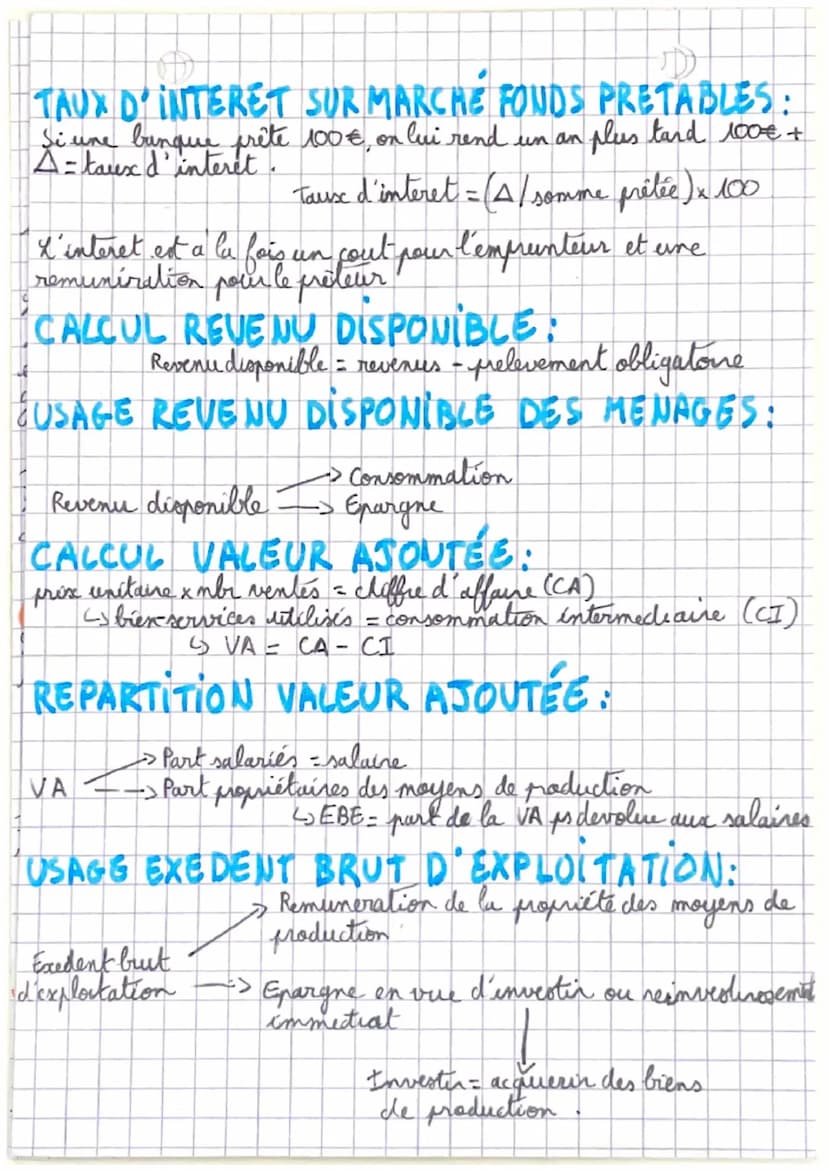 TAUX D'INTERET SUR MARCHÉ FONDS PRETABLES :
Si une banque prête 100€, on lui rend un an plus tard 100€ +
Δ = taux d'interêt.
Taux d'interet = (Δ/somme prêtée) x 100
L'interet est a la fois un cout pour l'emprunteur et une
remunération pour le prêteur
CALCUL REVENU DISPONIBLE :
Revenu disponible = revenus - prelevement obligatoire
USAGE REVENU DISPONIBLE DES MENAGES :
→ Consommation
Revenu disponible → Epargne
CALCUL VALEUR AJOUTÉE :
prix unitaire x nbr ventes = chiffre d'affaire (CA)
↳ bien-services utilisés = consommation intermediaire (CI)
↳ VA = CA - CI
REPARTITION VALEUR AJOUTÉE :
→ Part salariés = salaire
VA → Part propriétaires des moyens de production
↳ EBE = part de la VA ps devolue aux salaires
USAGE EXEDENT BRUT D'EXPLOITATION :
→ Remuneration de la propriété des moyens de
production
Exedent brut
d'exploitation → Epargne en vue d'investir ou reinvestissement
immediat
↓
Investir = acquerir des biens
de production.